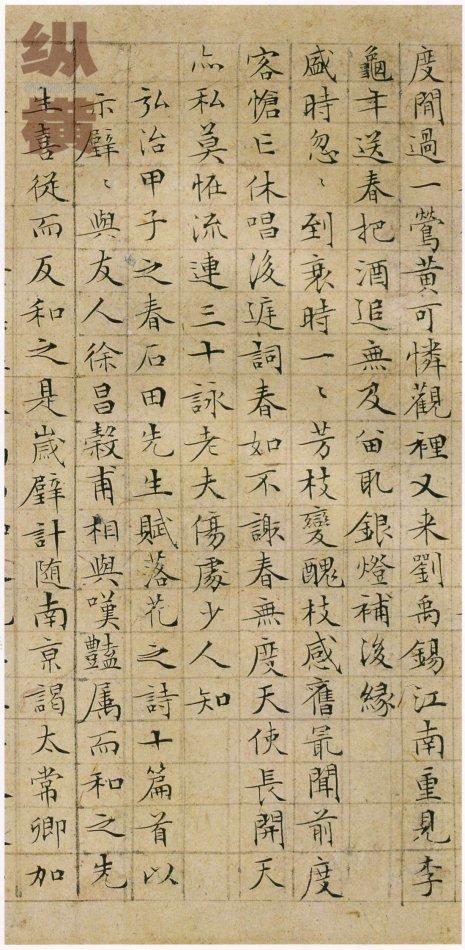 度閒過一鶯黃可憐觀裡又来劉禹錫江南重見李
龜年送春把酒追無及畱取銀燈補後緣
盛時忽〻到衰時一〻芳枝變醜枝感舊最聞前度
客愴亡休唱後庭詞春如不謝春無度天使長開天
亦私莫恠流連三十詠老夫傷處少人知
弘治甲子之春石田先生賦落花之詩十篇首以
示璧〻與友人徐昌穀甫相與嘆豔属而和之先
生喜從而反和之是歲璧計随南京謁太常卿加
纵横